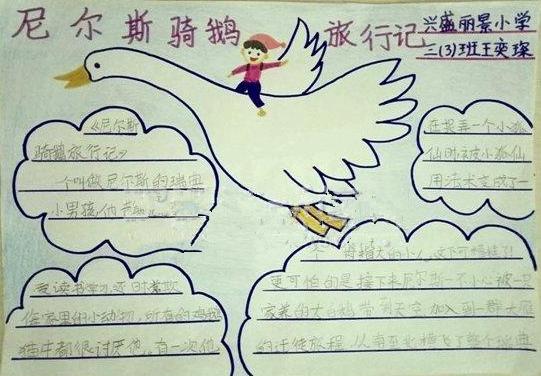 尼尔斯骑鹅旅行记
兴盛丽景小学
三(3)班王奕琛
《尼尔斯
骑鹅旅行记》
一个叫做尼尔斯的瑞典
小男孩，他
爱读书学习，还时常欺
家里的小动物，所有的鸡鹅
猫牛都很讨厌他，有一次他
在捉弄一个小狐
仙时被小狐仙
用法术变成了一
拇指大的小人，这下可惨了！
更可怕的是接下来尼尔斯不小心被一只
家养的大白鹅带到天空加入到一群大雁
的迁徙旅程，从南至北飞了整个瑞典